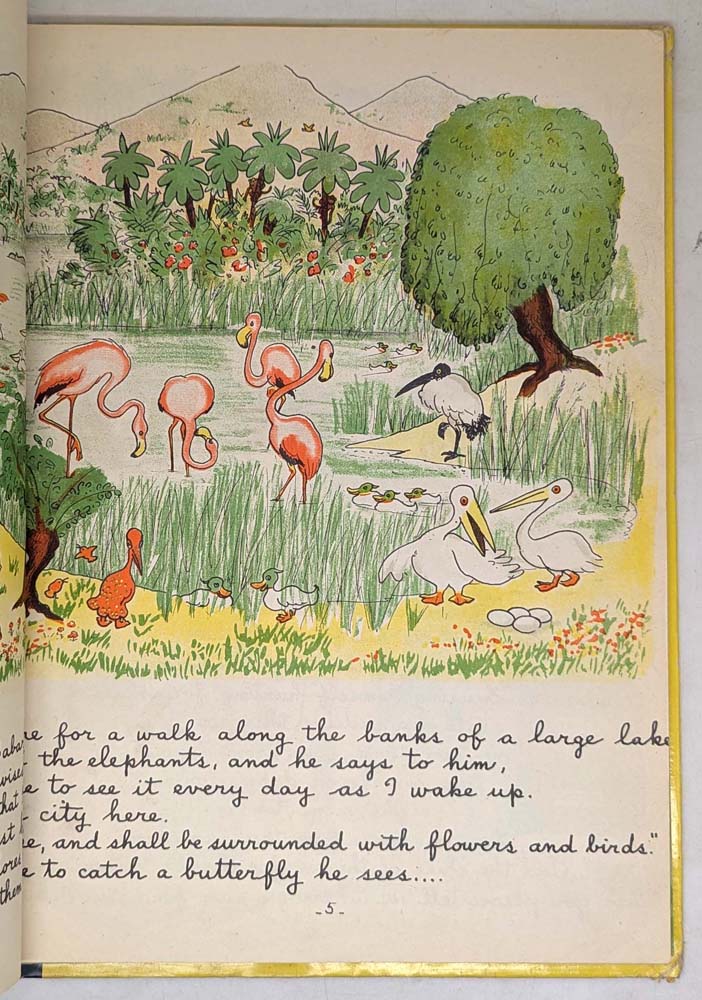 re for a walk along the banks of a large lake
the elephants, and he says to him,
e to see it every day as I wake up.
city here.
e, and shall be surrounded with flowers and birds."
e to catch a butterfly he sees....
-5-